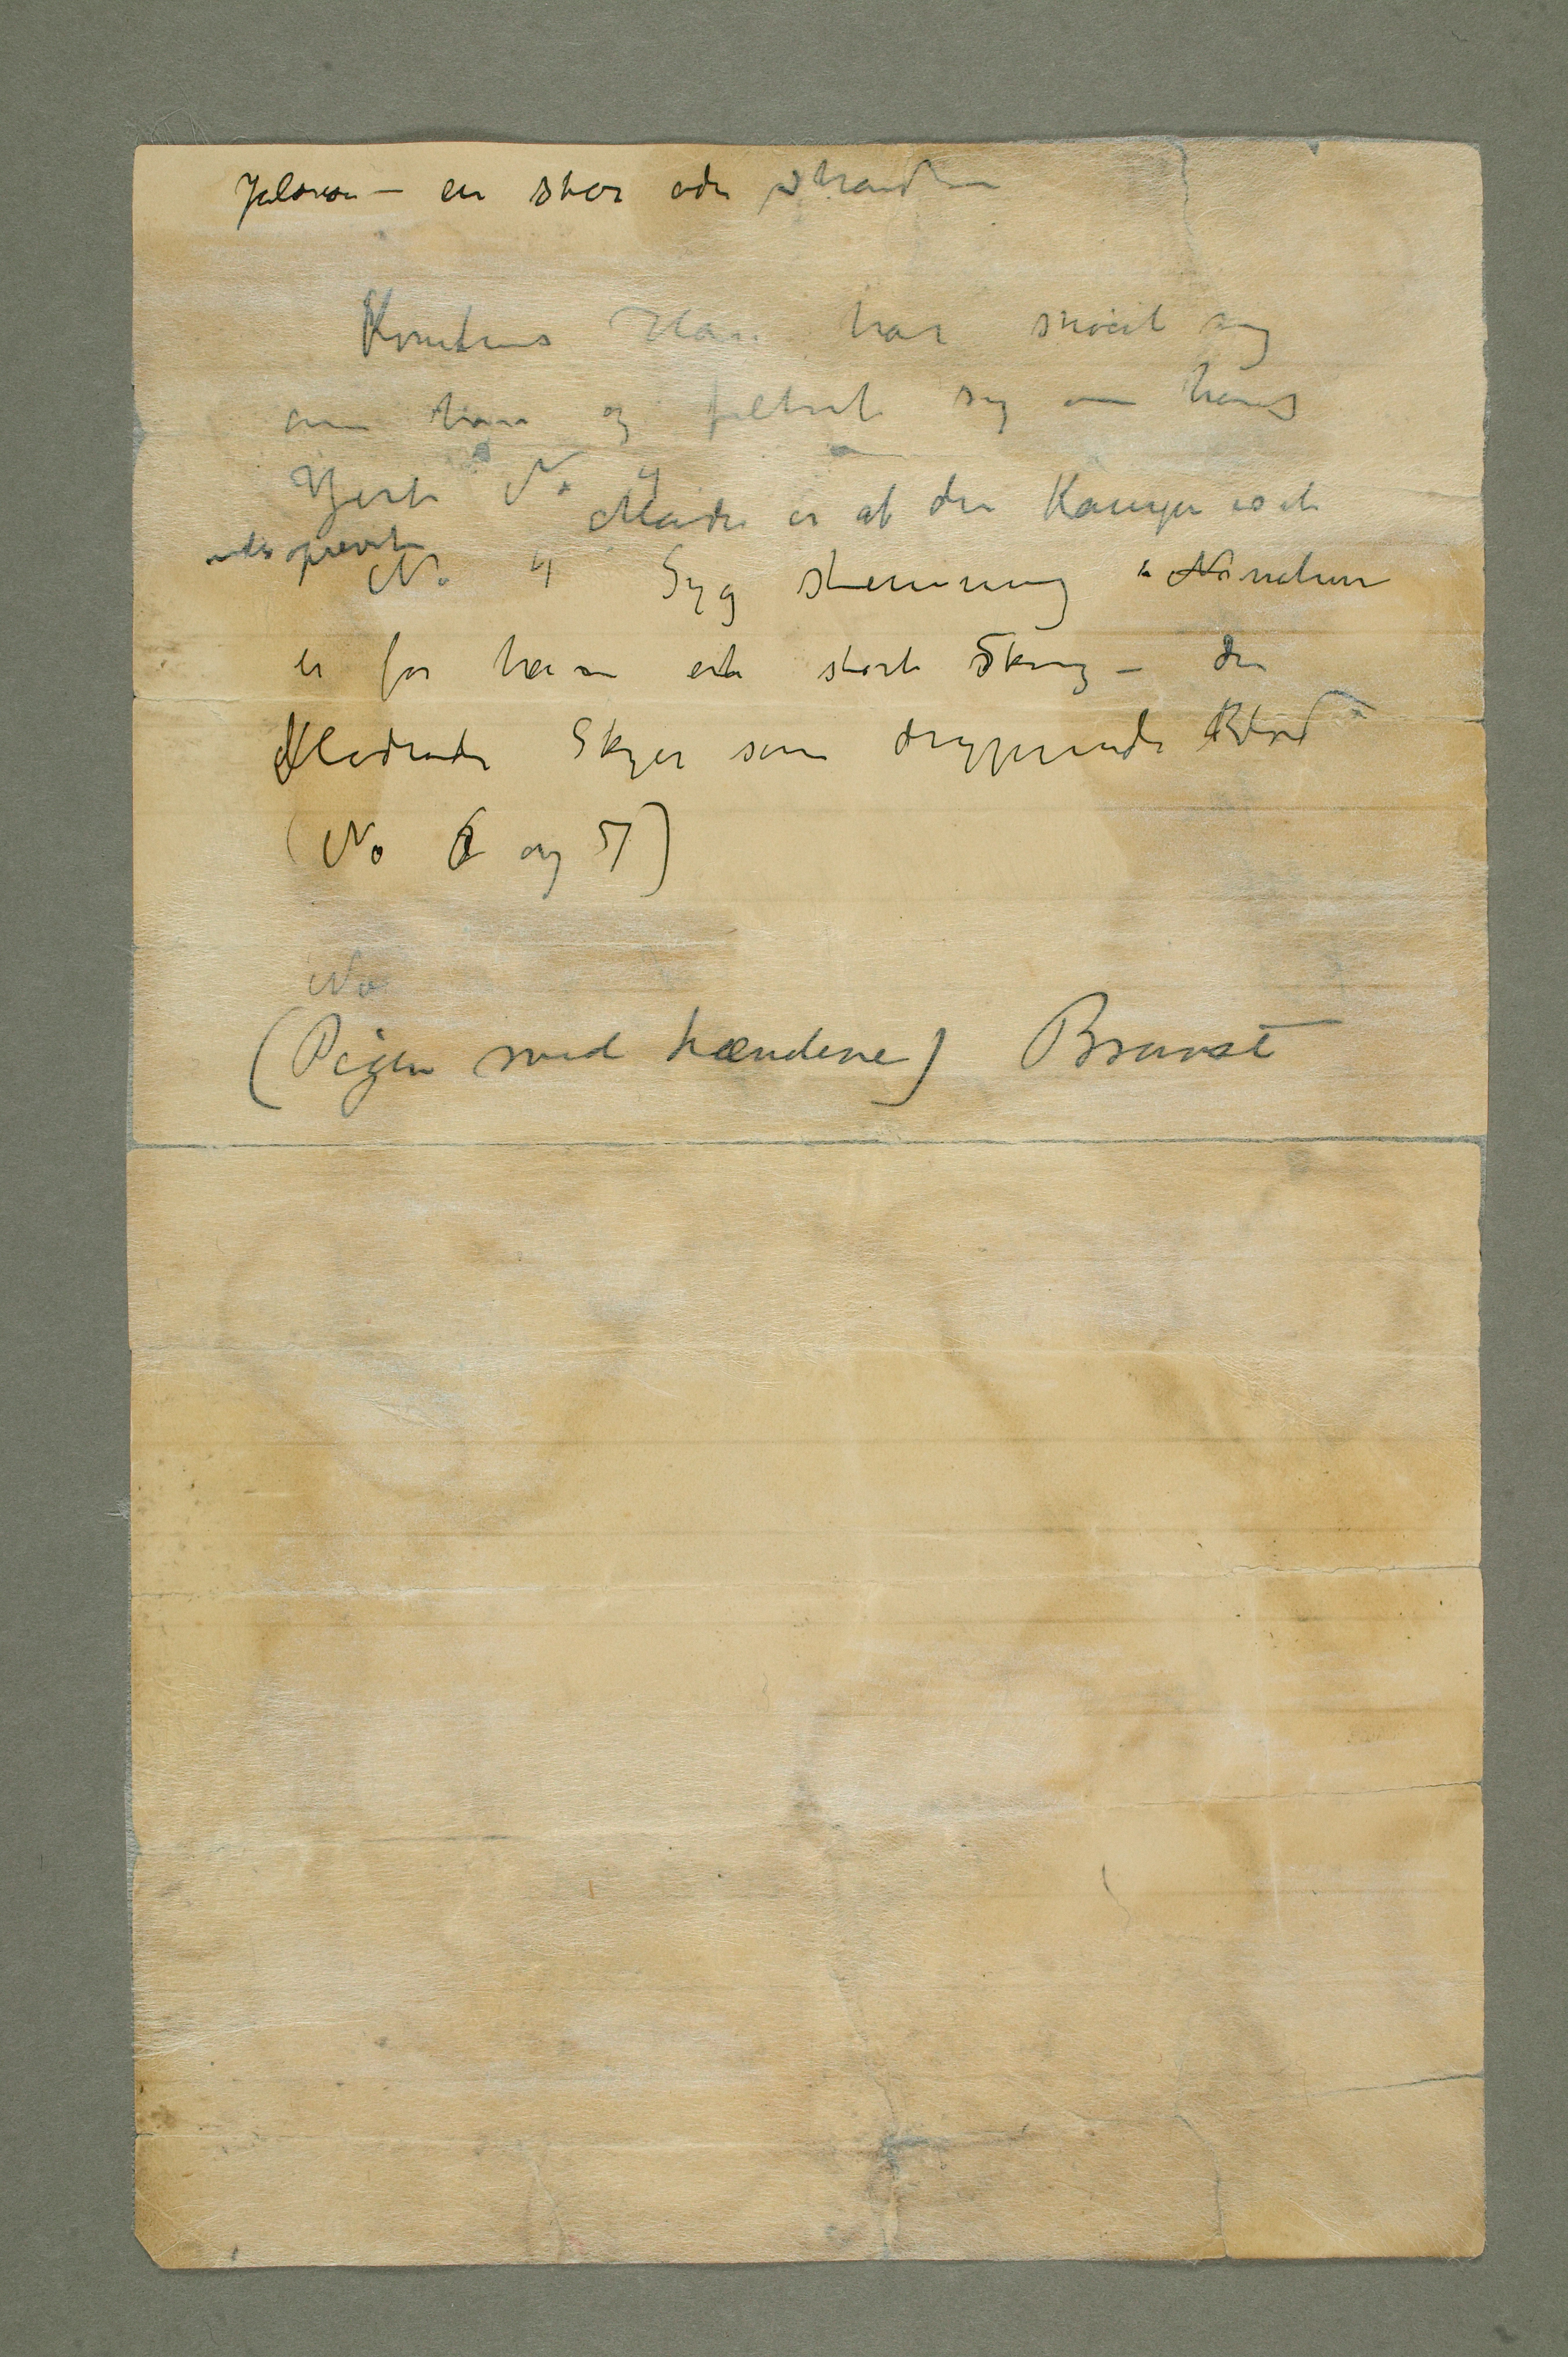 Jalousi – en stor øde strandlin
Kvindens Haar har snoet sig
om ham og filtret sig om hans
Hjerte No 4
Manden er af den Kampen
No 4 Syg stemning Naturen
er for ham et stort Skrig – de
blodrøde Skyer som dryppende Blod
(No 6 og 5)
No
(Pigen med hændene) Brunst